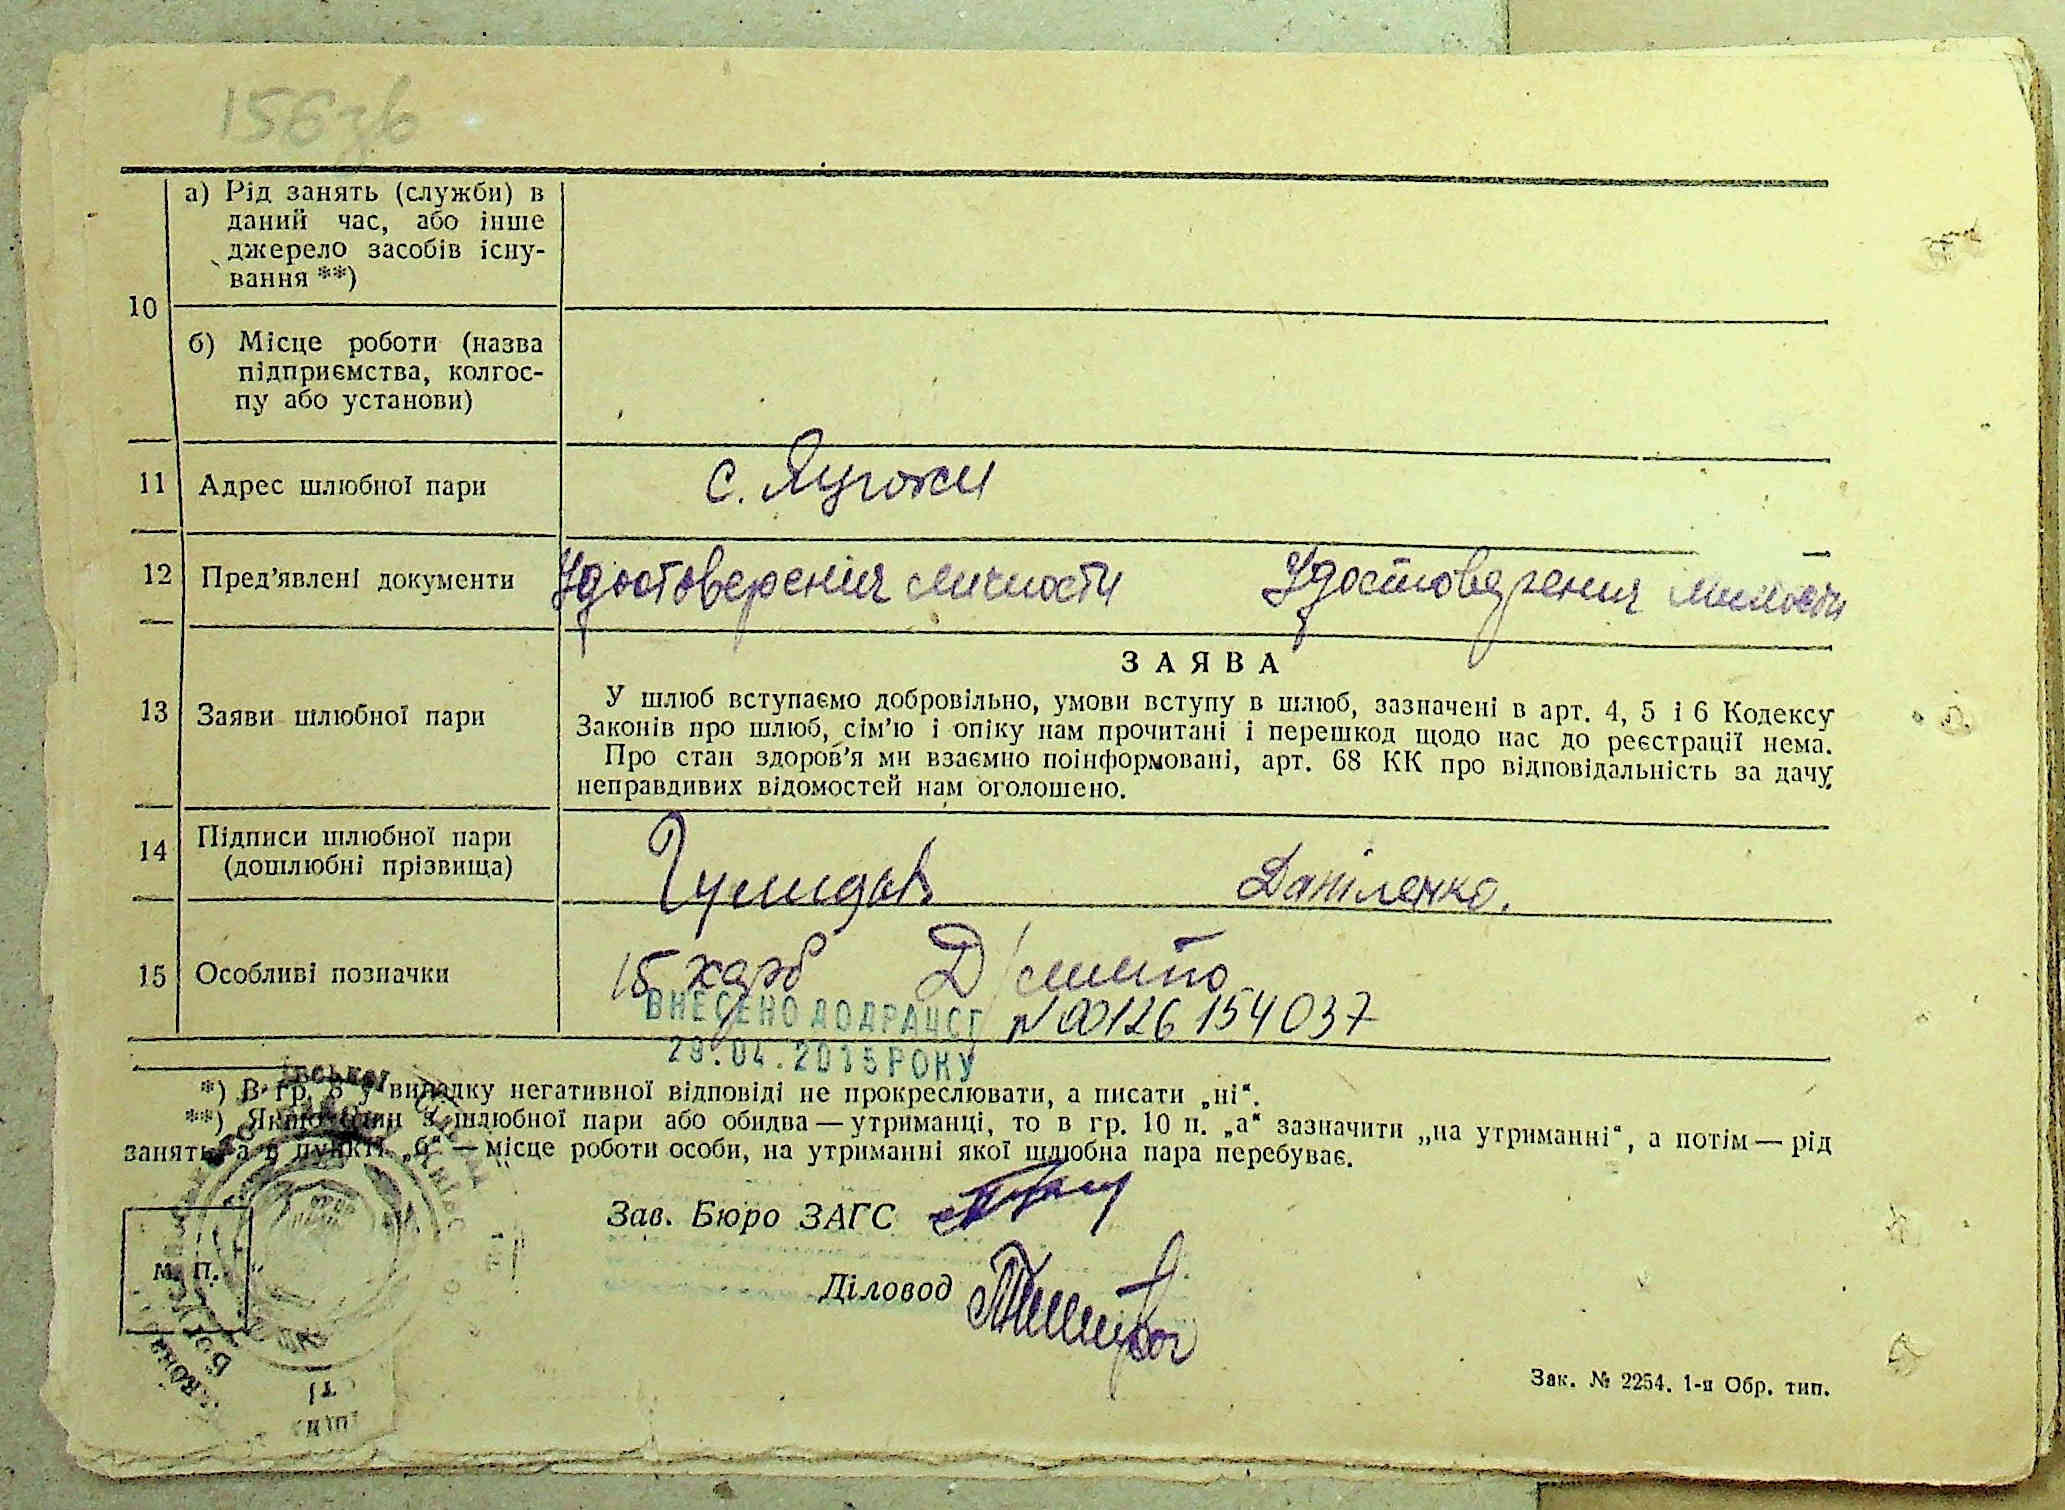 156зв
10
а) Рід занять (служби) в
даний час, або інше
джерело засобів існу-
вання **)
б) Місце роботи (назва
підприємства, колгос-
пу або установи)
11 Адрес шлюбної пари
с. Яцюжи
12 Пред’явлені документи
Удостоверения личности Удостоверения личности
13 Заяви шлюбної пари
ЗАЯВА
У шлюб вступаємо добровільно, умови вступу в шлюб, зазначені в арт. 4, 5 і 6 Кодексу
Законів про шлюб, сім’ю і опіку нам прочитані і перешкод щодо нас до реєстрації нема.
Про стан здоров’я ми взаємно поінформовані, арт. 68 КК про відповідальність за дачу
неправдивих відомостей нам оголошено.
14 Підписи шлюбної пари
(дошлюбні прізвища)
Даніленко.
15 Особливі позначки
15 карб
ВНЕСЕНО ДО ДРАЦСГ N 00126154037
29.04.2015 РОКУ
*) В гр. 8 у випадку негативної відповіді не прокреслювати, а писати „ні“.
**) Якщо один з шлюбної пари або обидва — утриманці, то в гр. 10 п. „а“ зазначити „на утриманні“, а потім — рід
занять, а в пункті „б“ — місце роботи особи, на утриманні якої шлюбна пара перебуває.
Зав. Бюро ЗАГС
М. П.
Діловод
Зак. № 2254. 1-я Обр. тип.